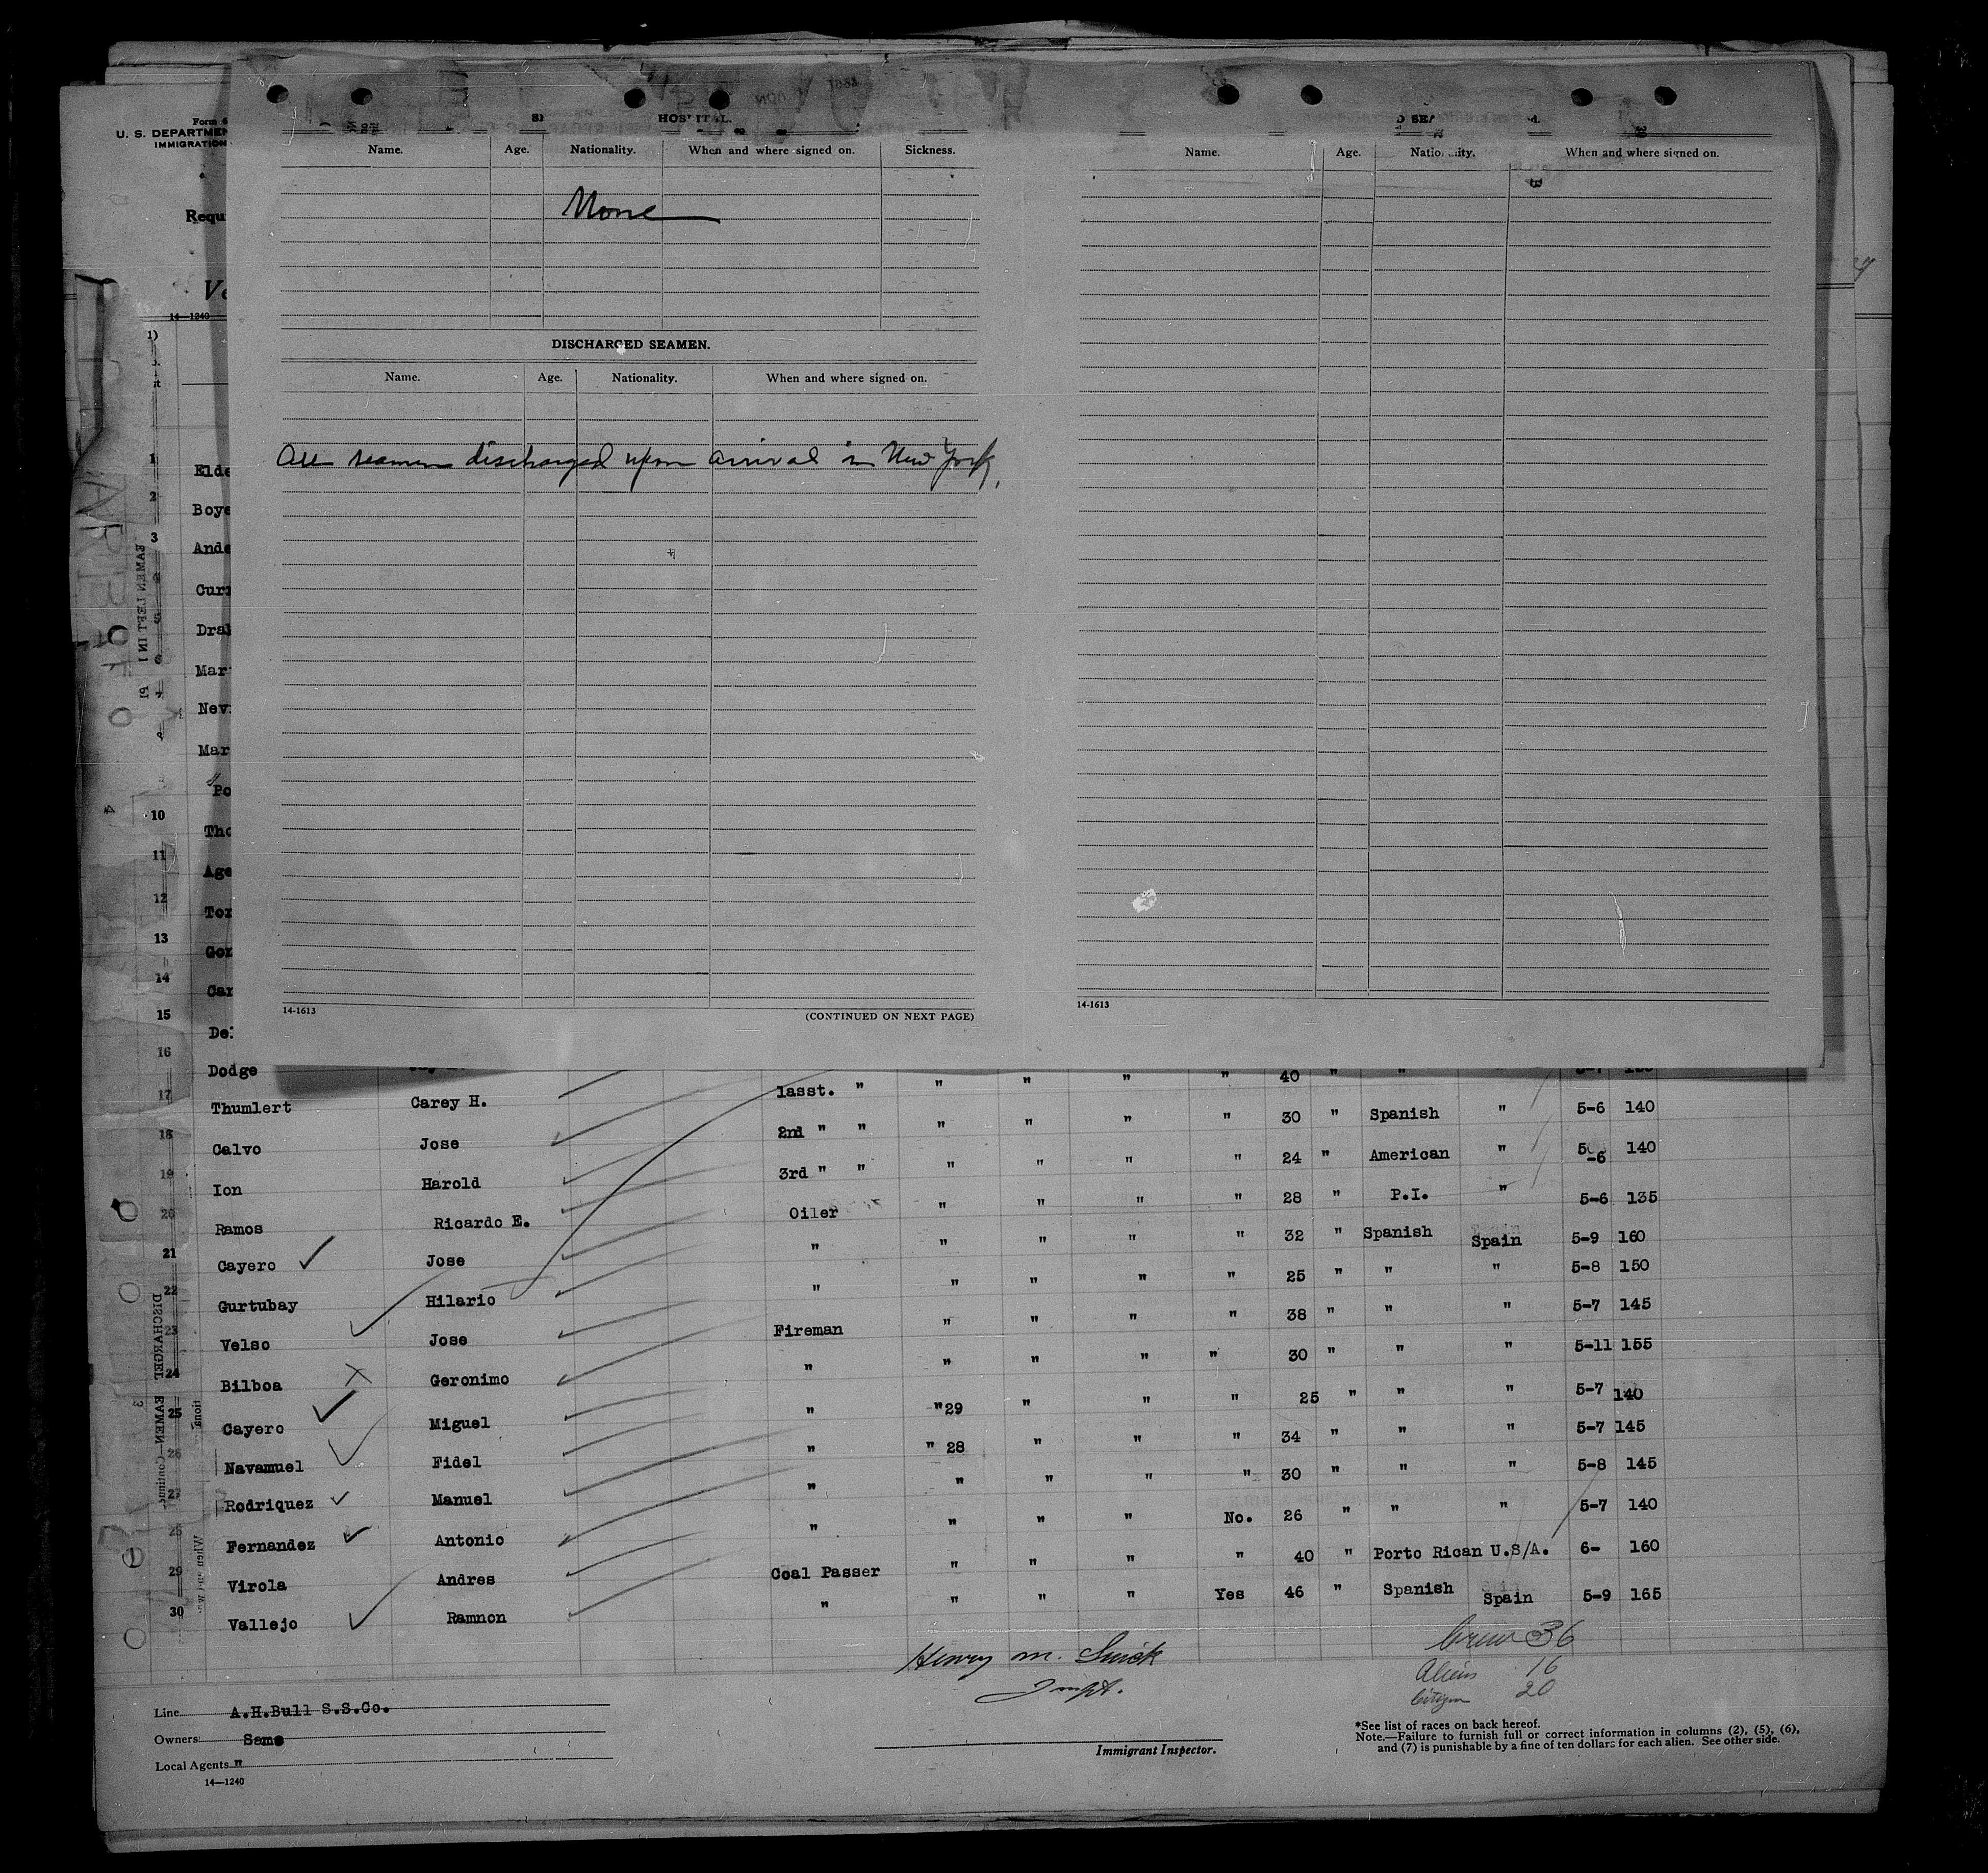 Form 6
U. S. DEPARTMEN
IMMIGRATION
Requ
14—1240
HOSPITAL.
Name. Age. Nationality. When and where signed on. Sickness.
None
DISCHARGED SEAMEN.
Name. Age. Nationality. When and where signed on.
All seamen discharged upon arrival in New York.
14-1613
(CONTINUED ON NEXT PAGE)
Name. Age. Nationality. When and where signed on.
14-1613
1 Elde
2 Boye
3 Ande
Curr
5 Dra
6 Mar
Nev
Mar
Po
10 Tho
11 Age
12 Tor
13 Gon
14 Car
15 De
16 Dodge
17 Thumlert Carey H. 1asst. " " " " " 40 " "
18 Calvo Jose 2nd " " " " " " 30 " Spanish " 5-6 140
19 Ion Harold 3rd " " " " " " 24 " American " 5-6 140
20 Ramos Ricardo E. Oiler " " " " 28 " P.I. " 5-6 135
21 Cayero Jose " " " " " 32 " Spanish Spain 5-9 160
22 Gurtubay Hilario " " " " " 25 " " " 5-8 150
23 Velso Jose Fireman " " " " 38 " " " 5-7 145
24 Bilboa Geronimo " " " " " 30 " " " 5-11 155
25 Cayero Miguel " "29 " " " 25 " " " 5-7 140
26 Navamuel Fidel " " 28 " " " 34 " " " 5-7 145
27 Rodriquez Manuel " " " " " 30 " " " 5-8 145
28 Fernandez Antonio " " " " No. 26 " " " 5-7 140
29 Virola Andres Coal Passer " " " " 40 " Porto Rican U.S/A. 6- 160
30 Vallejo Ramnon " " " " Yes 46 " Spanish Spain 5-9 165
Crew 36
Aliens 16
Citizen 20
Henry M.
Inspt.
Immigrant Inspector.
Line A.H.Bull S.S.Co.
Owners Same
Local Agents "
14—1240
*See list of races on back hereof.
Note.—Failure to furnish full or correct information in columns (2), (5), (6),
and (7) is punishable by a fine of ten dollars for each alien. See other side.